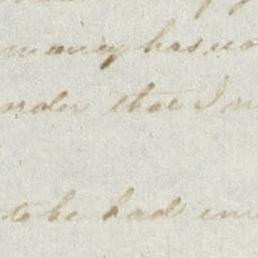 money has no
order that I
to be had